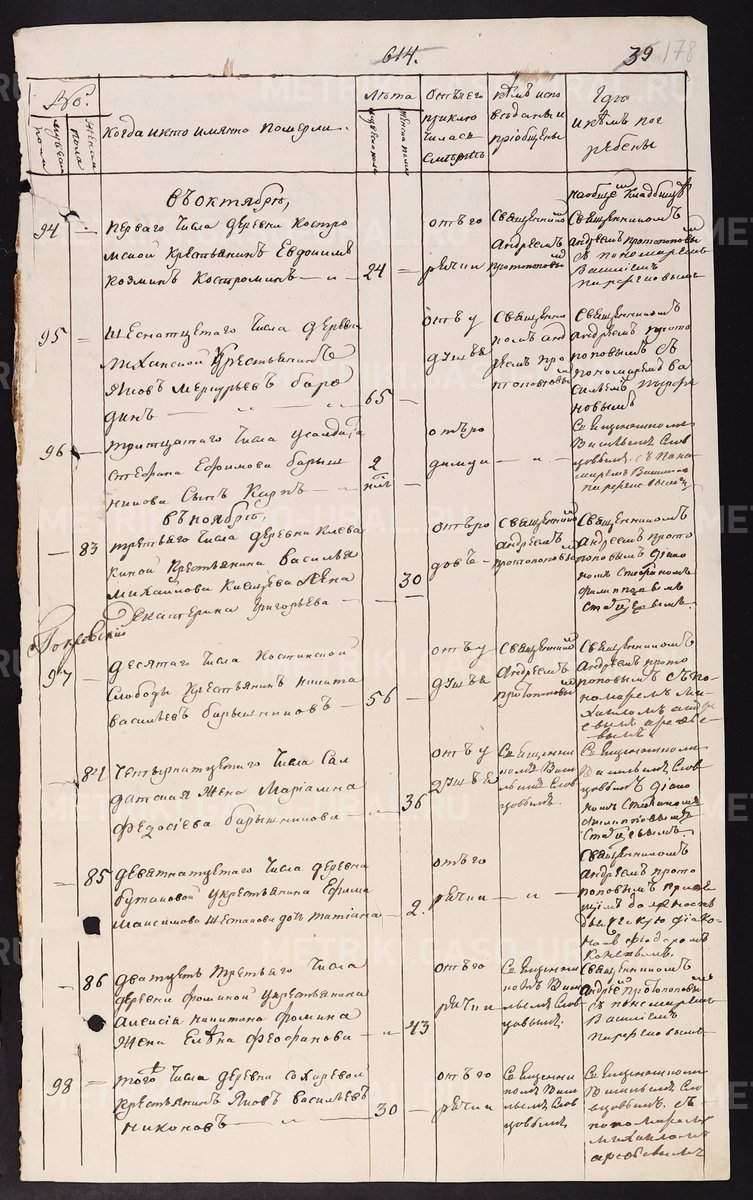 614.
39
178
№.
мужеска пола
женска пола
Когда и кто имянно померли..
Лѣта
мужеска пола
женска пола
Отъ чего приклю
чилась
смерть
кѣмъ испо
вѣданы и
пріобщены
Гдѣ
и кѣмъ пог
ребены
въ октябрѣ,
на общемъ кладбищѣ
94 — перваго числа деревни Костро
мской крестьянинъ Евдокимъ
Козминъ Костроминъ — 24 —
отъ го
рячки
Священникомъ
Андреемъ
Протопоповымъ
Священникомъ
Андреемъ Протопоповымъ
съ пономаремъ
Василіемъ
Парфеновымъ
95 — шеснатцетаго числа деревни
крестьянинъ
Яковъ Меркурьевъ Боро
динъ — 65 —
отъ у
душья
Священни
комъ Анд
реемъ Про
топоповымъ
Священникомъ
Андреемъ Прото
поповымъ съ
пономаремъ Ва
силіемъ Парфе
новымъ
96 — тритцатаго числа у солдата
Стефана Ефимова Барыш
никова сынъ Карпъ — 2
нед
отъ ро
димца
— " —
Священникомъ
Василіемъ Слов
цовымъ. съ поно
маремъ Василіемъ
Парфеновымъ
въ ноябрѣ,
— 83 третьяго числа деревни Клева
киной крестьянина Василья
Михайлова жена
Екатерина Григорьева — 30
отъ ро
довъ —
Священникомъ
Андреемъ
Протопоповымъ
Священникомъ
Андреемъ Прото
поповымъ діако
номъ Стефаномъ
Филипповымъ
Стадухинымъ.
Покровскій
97 — десятаго числа Костинской
слободы крестьянинъ Никита
Васильевъ Барышниковъ — 56 —
отъ у
душья
Священникомъ
Андреемъ
Протопоповымъ
Священникомъ
Андреемъ Прото
поповымъ съ по
номаремъ Ми
хаиломъ
— 84 четырнатцетаго числа Сал
датская жена Маріамна
Федосіева Барышникова — 36
отъ у
душья
Священни
комъ Васи
льемъ Слов
цовымъ.
Священникомъ
Васильемъ Слов
цовымъ діако
номъ Стефаномъ
Филипповымъ
— 85 девятнатцетаго числа деревни
Бутаковой у крестьянина Ефима
Максимова Шестакова дочь Татіана — 2.
отъ го
рячки
— " —
Священникомъ
Андреемъ Прото
поповымъ
должность
діако
номъ Феодоромъ
— 86 дватцеть третьяго числа
деревни Фоминой у крестьянина
Алексія Никитина Фомина
жена Елена Феофанова — 43
отъ го
рячки
Священни
комъ Васи
льемъ Слов
цовымъ.
Священникомъ
Андреемъ Протопоповымъ
съ пономаремъ
Василіемъ
Парфеновымъ
98 — того числа деревни Сохаревой
крестьянинъ Яковъ Васильевъ
Никоновъ — 30 —
отъ го
рячки
Священни
комъ Васи
льемъ Слов
цовымъ
Священникомъ
Васильемъ Сло
вцовымъ. съ
пономаремъ
Михаиломъ